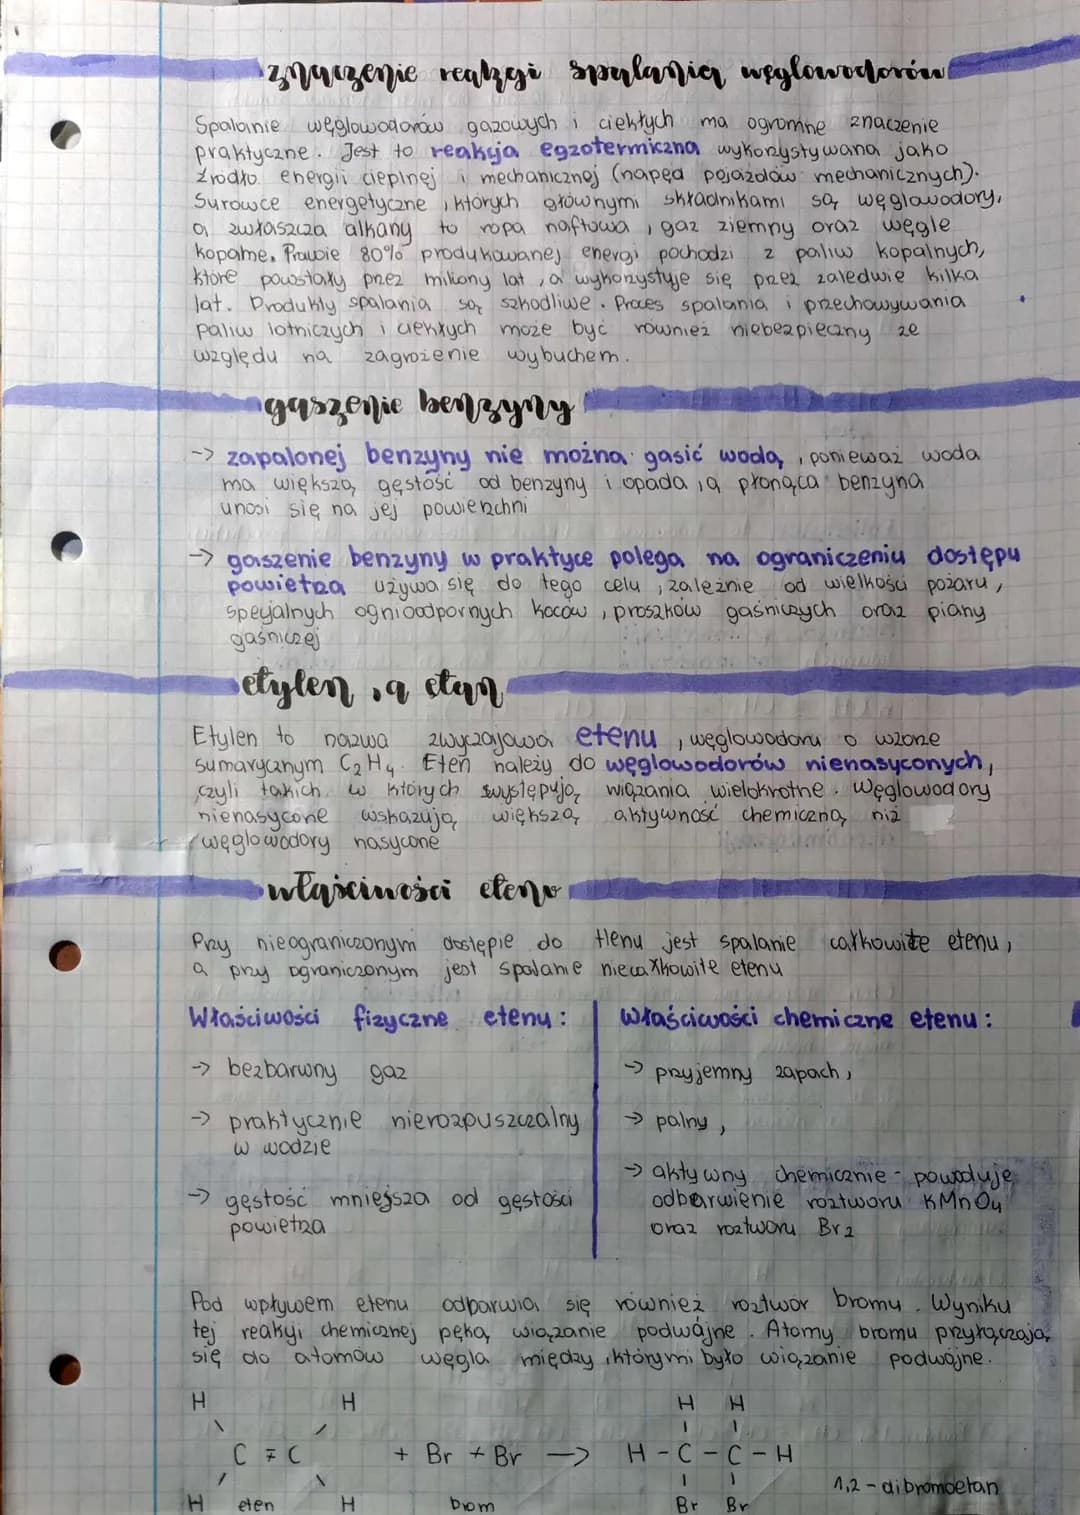 znaczenie reakcji spalania węglowodorów
Spalanie węglowodorów gazowych i ciekłych ma ogromne znaczenie
praktyczne. Jest to reakcja egzotermiczna wykorzystywana jako
źródło energii cieplnej i mechanicznej (napęd pojazdów mechanicznych).
Surowce energetyczne, których głównymi składnikami są węglowodory,
a zwłaszcza alkany to ropa naftowa, gaz ziemny oraz węgle
kopalne. Prawie 80% produkowanej energi pochodzi z paliw kopalnych,
które powstały przez miliony lat, a wykorzystuje się przez zaledwie kilka
lat. Produkty spalania są szkodliwe. Proces spalania i przechowywania
paliw lotniczych i ciekłych może być również niebezpieczny ze
względu na zagrożenie wybuchem.
gaszenie benzyny
-> zapalonej benzyny nie można gasić wodą, ponieważ woda
ma większą gęstość od benzyny i opada, a płonąca benzyna
unosi się na jej powierzchni
-> gaszenie benzyny w praktyce polega na ograniczeniu dostępu
powietrza używa się do tego celu, zależnie od wielkości pożaru,
specjalnych ognioodpornych koców, proszków gaśniczych oraz piany
gaśniczej
etylen, a etan
Etylen to nazwa zwyczajowa etenu, węglowodoru o wzorze
sumarycznym C₂H₄. Eten należy do węglowodorów nienasyconych,
czyli takich w których występują wiązania wielokrotne. Węglowodory
nienasycone wskazują większą aktywność chemiczną niż
węglowodory nasycone
właściwości etenu
Przy nieograniczonym dostępie do tlenu jest spalanie całkowite etenu,
a przy ograniczonym jest spalanie niecałkowite etenu
Właściwości fizyczne etenu:
-> bezbarwny gaz
-> praktycznie nierozpuszczalny
w wodzie
-> gęstość mniejsza od gęstości
powietrza
Właściwości chemiczne etenu:
-> przyjemny zapach,
-> palny,
-> aktywny chemicznie - powoduje
odbarwienie roztworu KMnO₄
oraz roztworu Br₂
Pod wpływem etenu odbarwia się również roztwór bromu. Wyniku
tej reakcji chemicznej pęka wiązanie podwójne. Atomy bromu przyłączają
się do atomów węgla między, którymi było wiązanie podwójne.
H H H H
C ≠ C + Br ≠ Br -> H - C - C - H
H eten H brom Br Br 1,2 - dibromoetan